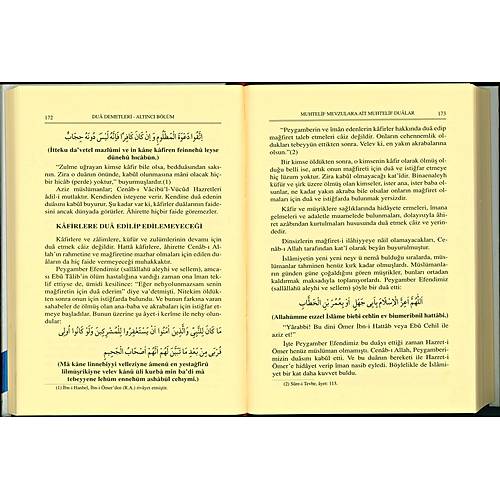 172 DUÂ DEMETLERİ - ALTINCI BÖLÜM
اِتَّقُوا دَعْوَةَ الْمَظْلُومِ وَاِنْ كَانَ كَافِرًا فَاِنَّهُ لَيْسَ دُونَهُ حِجَابٌ
(İtteku da'vetel mazlûmi ve in kâne kâfiren feinnehû leyse
dûnehû hicâbün.)
"Zulme uğrayan kimse kâfir bile olsa, bedduâsından sakı-
nın. Zira o duânın önünde, kabûl olunmasına mâni olacak hiç-
bir hicâb (perde) yoktur," buyurmuşlardır.(1)
Aziz müslümanlar; Cenâb-ı Vâcibü'l-Vücûd Hazretleri
âdil-i mutlaktır. Kendinden isteyene verir. Kendine duâ edenin
duâsını kabûl buyurur. Şu kadar var ki, kâfirler duâlarının faide-
sini ancak dünyada görürler. Âhirette hiçbir faide göremezler.
KÂFİRLERE DUÂ EDİLİP EDİLEMEYECEĞİ
Kâfirlere ve zâlimlere, küfür ve zulümlerinin devamı için
duâ etmek câiz değildir. Hatta kâfirlere, âhirette Cenâb-ı Al-
lah'ın rahmetine ve mağfiretine mazhar olmaları için edilen du-
âların da hiç faide vermeyeceği muhakkaktır.
Peygamber Efendimiz (sallâllahü aleyhi ve sellem), amca-
sı Ebû Tâlib vefat edeceği zaman, ona imân etmesini tek-
lif ettiyse de, ümidi kesilince: "Eğer nehyolunmazsam senin
mağfiretin için duâ ederim" diye va'detmişti. Nitekim öldük-
ten sonra onun için istiğfarda bulundu. Ve bunun farkına varan
sahabeler de ölmüş olan ana-baba ve yakınlarına da duâ et-
meye başladılar. Bunun üzerine şu âyet-i kerîme ile nehy olun-
dular:
مَا كَانَ لِلنَّبِيِّ وَالَّذِينَ آمَنُوا اَنْ يَسْتَغْفِرُوا لِلْمُشْرِكِينَ وَلَوْ كَانُوا اُولِى
قُرْبَى مِنْ بَعْدِ مَا تَبَيَّنَ لَهُمْ اَنَّهُمْ اَصْحَابُ الْجَحِيمِ
(Mâ kâne linnebiyyi velleziyne âmenû en yestağfirû
lilmüşrikiyne velev kânû üli kurbâ min ba'di mâ
tebeyyene lehüm ennehüm ashâbül cehıymi.)
(1) İbn-i Hanbel, İbn-i Ömer'den (R.A.) rivâyet etmiştir.
MUHTELİF MEVZULARA AİT MUHTELİF DUÂLAR 173
"Peygamberin ve îmân edenlerin kâfirler hakkında duâ edip
mağfiret taleb etmeleri câiz değildir. Onların cehennemlik ol-
dukları tebeyyün ettikten sonra. Velev ki, en yakın akrabalarına
olsun."(2)
Bir kimse öldükten sonra, o kimsenin kâfir olarak ölmüş ol-
duğu belli ise, artık onun mağfireti için duâ ve istiğfar etmeye
hiç lüzum yoktur. Zira kabûl olmayacağı kat'idir. Binaenaleyh
küfür ve şirk üzere ölmüş olan kimseler, ister ana, ister baba ol-
sunlar, ne kadar yakın akraba bile olsalar onların mağfiret ol-
maları için duâ ve istiğfarda bulunmak yersizdir.
Kâfir ve müşriklere sağlıklarında hidâyete ermeleri, îmana
gelmeleri ve adaletle muamelede bulunmaları, dolayısıyla âhi-
ret azâbından kurtulmaları hususunda duâ etmek câiz ve yerin-
dedir.
Dinsizlerin mağfiret-i ilâhiyyeye nâil olamayacakları, Ce-
nâb-ı Allah tarafından beyan buyrulmuştur.
İslâmiyetin yeni yeni neşv ü nemâ bulduğu sıralarda, müs-
lümanlar tahminen henüz kırk kadar olmuşlardı. Müslümanla-
rın günden güne çoğaldığını gören müşrikler, bunları ortadan
kaldırmak maksadıyla toplanıyorlardı. Peygamber Efendimiz
(sallâllahü aleyhi ve sellem) şöyle bir duâ etti:
اَللّٰهُمَّ اَعِزَّ الْاِسْلَامَ بِاَبِى جَهْلٍ اَوْ بِعُمَرَ بْنِ الْخَطَّابِ
(Allahümme eızzel İslâme biebî cehlin ev biumeribnil hattâbi.)
"Yârabbi! Bu dini Ömer İbn-i Hattâb veya Ebû Cehil ile
aziz et!"
İşte Peygamber Efendimiz bu duâyı ettiği zaman Hazret-i
Ömer henüz müslüman olmamıştı. Cenâb-ı Allah, Peygamberi-
mizin duâsını kabûl etti. Ve bu duânın bereketi ile Hazret-i
Ömer'e hidâyet verip îman nasib eyledi. Böylelikle de İslâmi-
yet bir kat daha kuvvet buldu.
(2) Sûre-i Tevbe, âyet: 113.